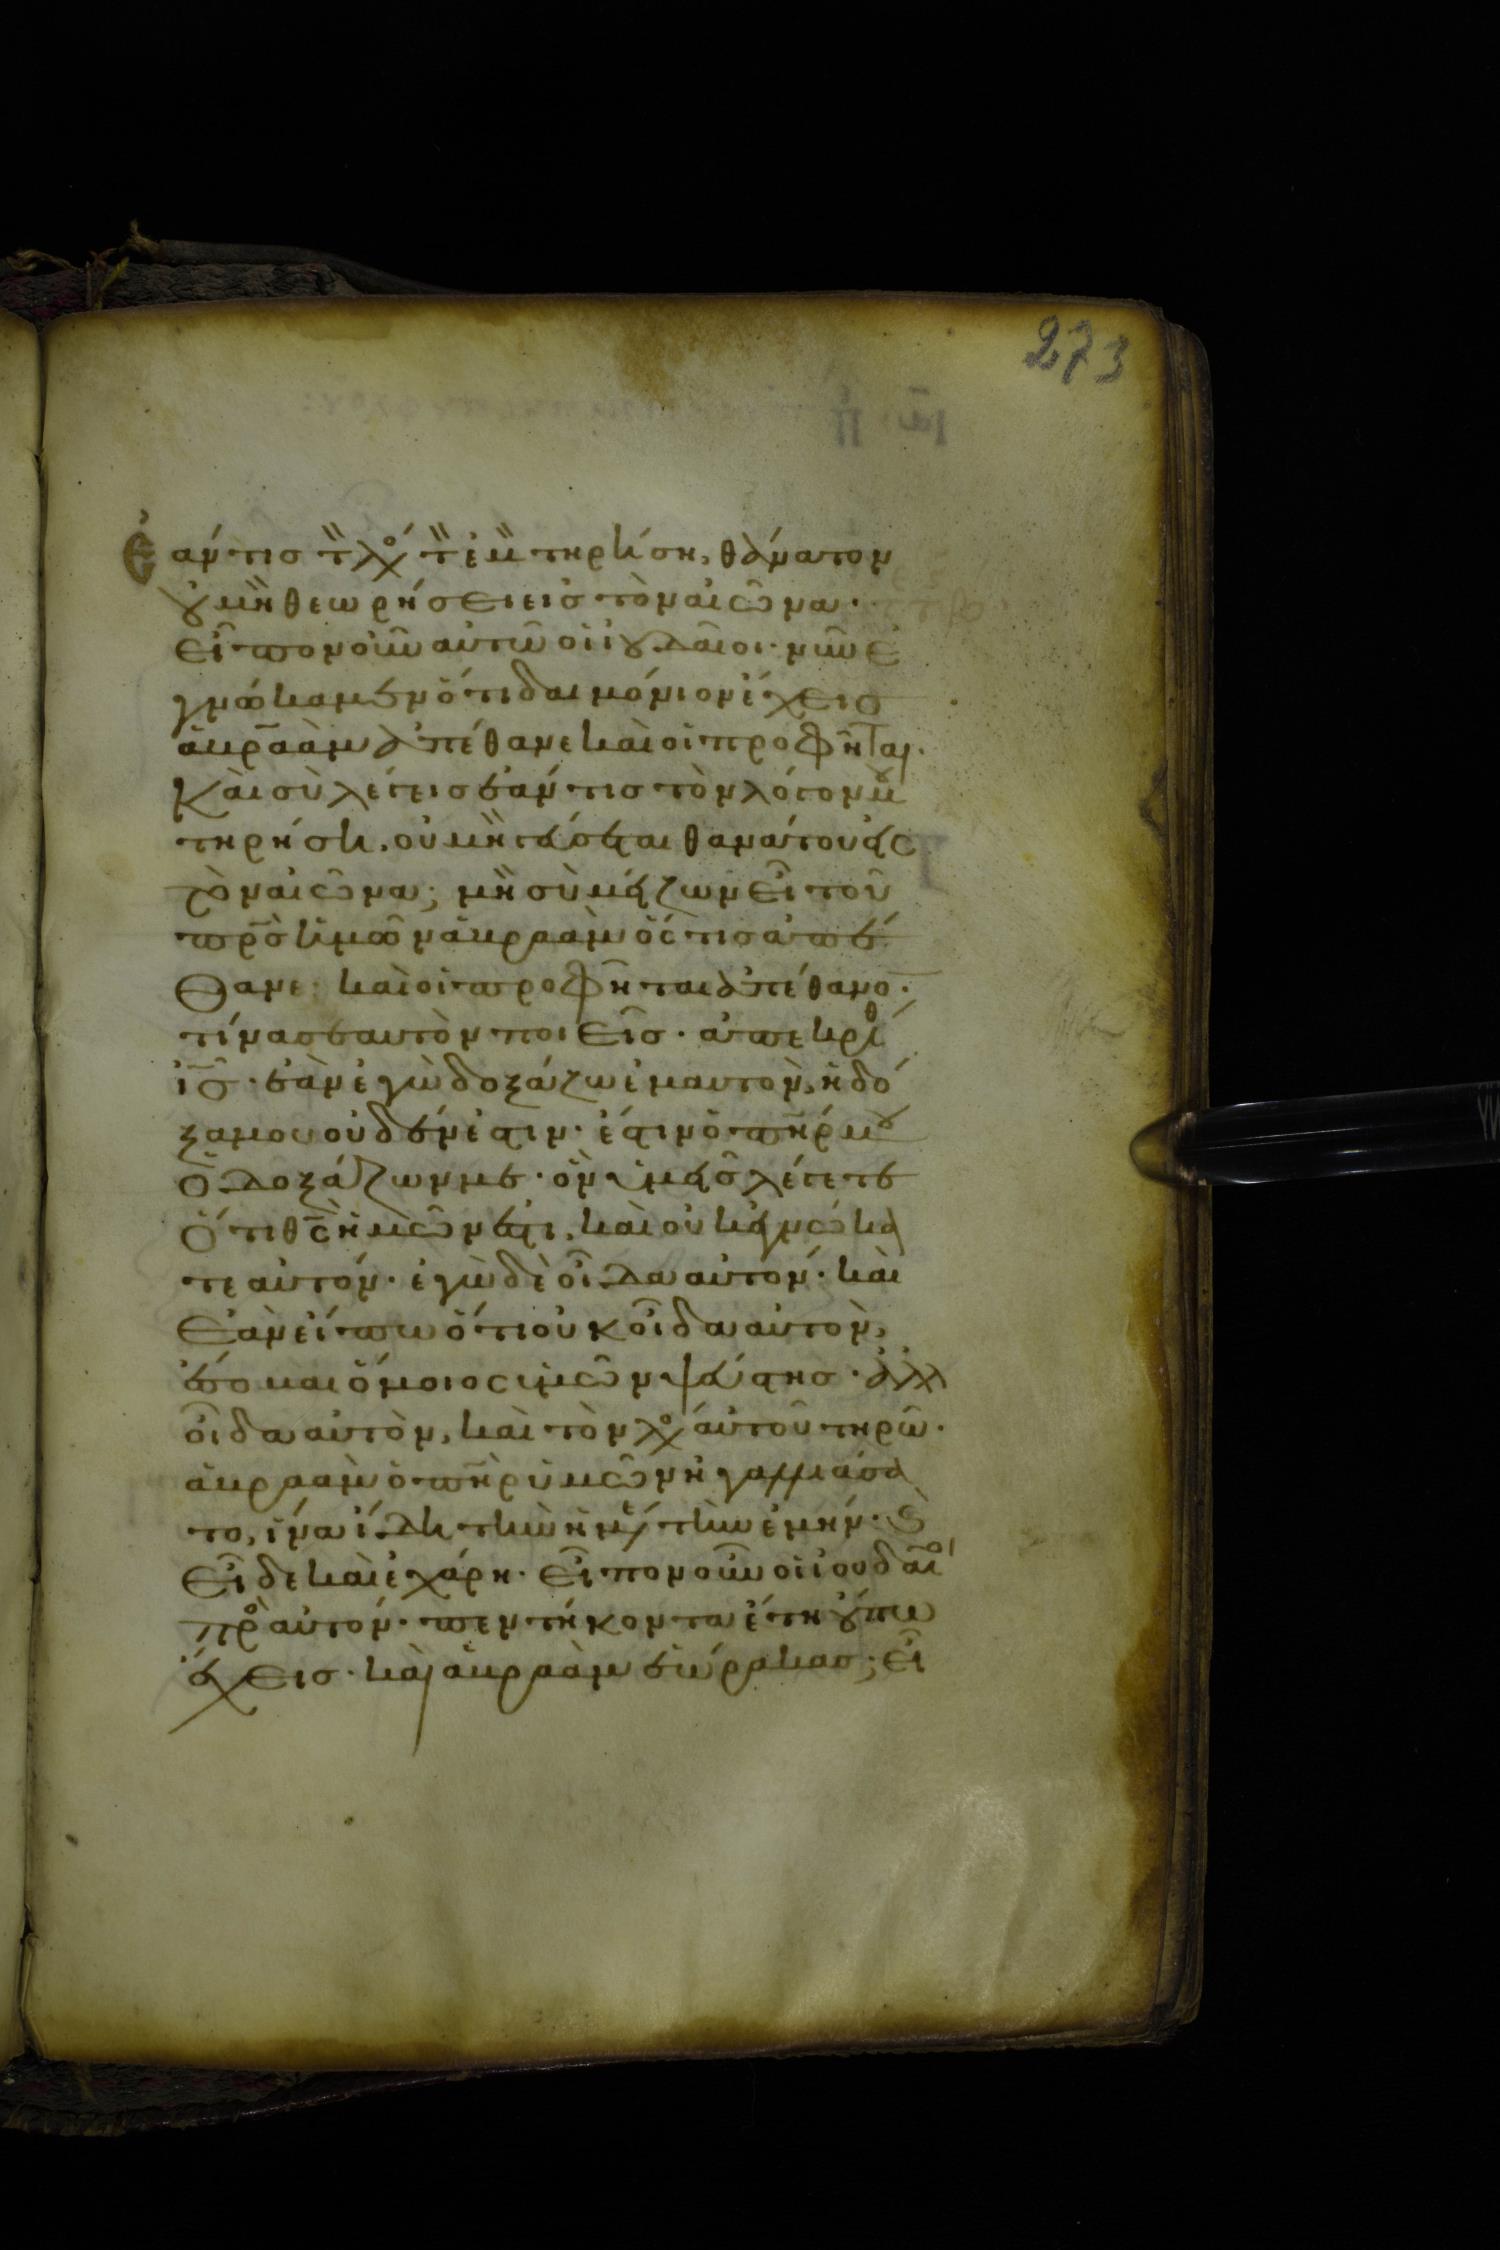 273
Ἐάν τις τ λο τ ἐμ τηρήση, θάνατον
οὐ μὴ θεωρήσει εἰς τὸν αἰῶνα·
εἶπον οὖν αὐτῶ οἱ ἰουδαῖοι· νῦν ἐ
γνώκαμεν ὅτι δαιμόνιον ἔχεις
ἀβραὰμ ἀπέθανε καὶ οἱ προφῆται·
Καὶ σὺ λέγεις ἐάν τις τὸν λόγον μου
τηρήση, οὐ μὴ γεύσεται θανάτου εἰς
τὸν αἰῶνα; μὴ σὺ μείζων εἶ τοῦ
πρς ἡμῶν ἀβραὰμ ὅστις ἀπέ
θανε· καὶ οἱ προφῆται ἀπέθανο·
τίνα σεαυτὸν ποιεῖς· ἀπεκρίθ
ἰς· ἐὰν ἐγὼ δοξάζω ἐμαυτὸν, ἡ δό
ξα μου οὐδέν ἐστιν· ἔστιν ὁ πηρ μου
ὁ δοξάζων με· ὃν ὑμεῖς λέγετε
ὅτι θς ἡμῶν ἐστι, καὶ οὐκ ἐγνώκα
τε αὐτόν· ἐγὼ δὲ οἶδα αὐτόν· καὶ
ἐὰν εἴπω ὅτι οὐκ οἶδα αὐτὸν,
ἔσομαι ὅμοιος ὑμῶν ψεύστης· ἀλλ
οἶδα αὐτὸν, καὶ τὸν λο αὐτοῦ τηρῶ·
ἀβραὰμ ὁ πηρ ὑμῶν ἠγαλλιάσα
το, ἵνα ἴδη τὴν ἡμέ τὴν ἐμήν· καὶ
εἶδε καὶ ἐχάρη· εἶπον οὖν οἱ ἰουδαῖοι
πρὸ αὐτόν· πεντήκοντα ἔτη οὔπω
ἔχεις· καὶ ἀβραὰμ ἑώρακας; εἶ